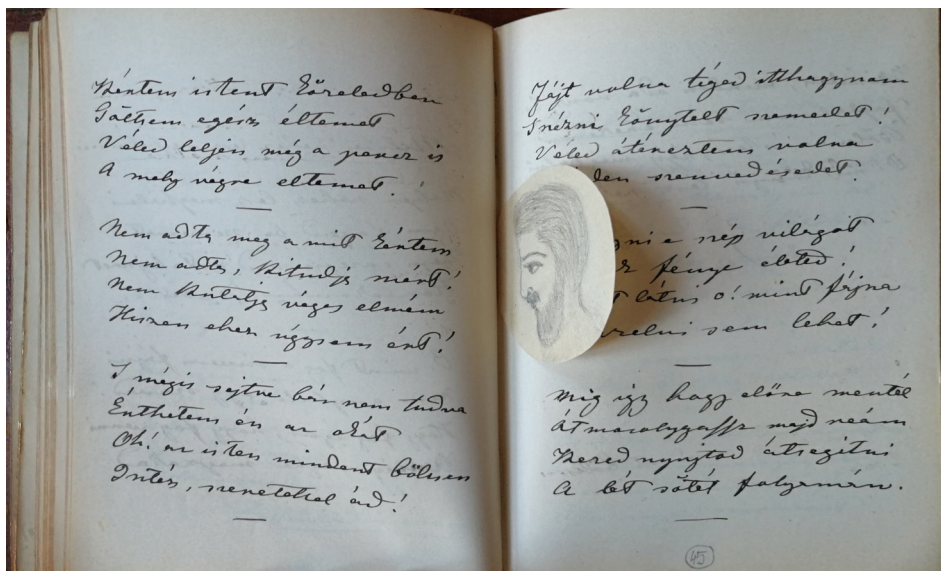 Kértem istent közeledben
Töltsem egész éltemet
Véled leljen még a percz is
A mely végre eltemet.
Nem adta meg a mit kértem
Nem adta, ki tudja miért!
Nem kutatja véges elmém
Hiszen ehez úgysem ért!
S mégis sejtve bár nem tudva
Érthetem én az okát
Oh! az isten mindent bölcsen
Intéz, szeretettel ád!
Fájt volna téged itthagynom
S nézni könytelt szemedet!
Véled átéreztem volna
den szenvedésedet.
ni e szép világot
fénye életed!
látni o! mint fájna
relni sem lehet!
Mig igy hogy előre mentél
Átmosolygassz majd reám
Kezed nyujtod átsegitni
A lét sötét folyamán.
45